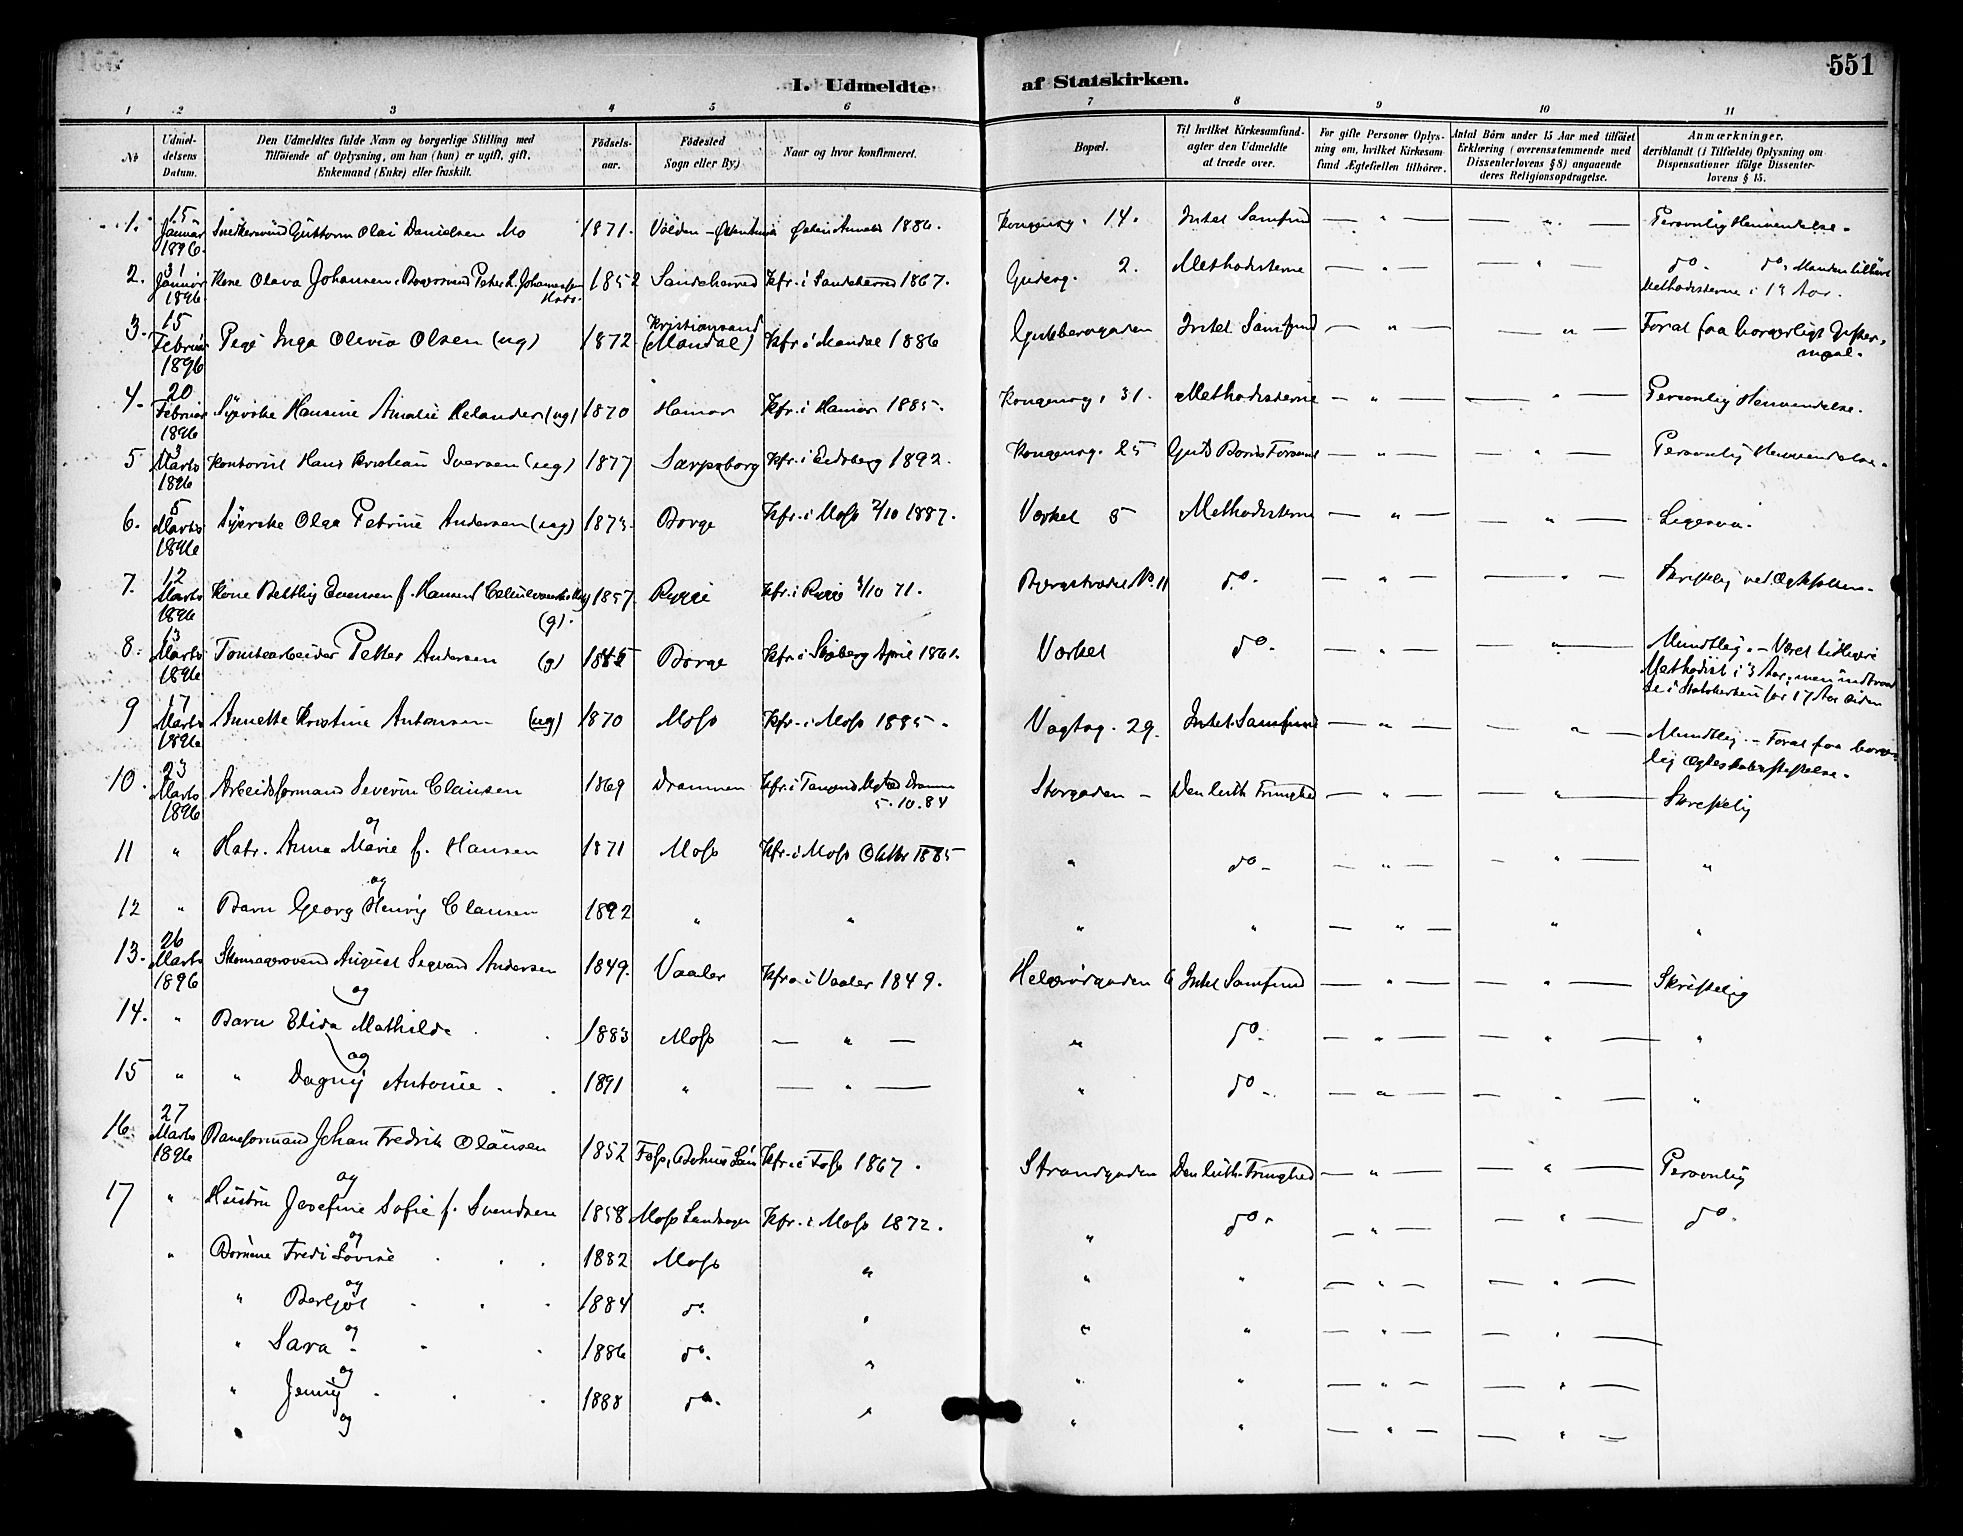 551
I. Udmeldte af Statskirken.
1 2 3 4 5 6 7 8 9 10 11
No
Udmel-
delsens
Datum.
Den Udmeldtes fulde Navn og borgerlige Stilling med
Tilføiende af Oplysning, om han (hun) er ugift, gift,
Enkemand (Enke) eller fraskilt.
Fødsels-
aar.
Fødested
Sogn eller By.)
Naar og hvor konfirmeret.
Bopæl.
Til hvilket Kirkesamfund-
agter den Udmeldte
at træde over.
For gifte Personer Oplys-
ning om, hvilket Kirkesam-
fund Ægtefællen tilhører.
Antal Børn under 15 Aar med tilføiet
Erklæring (overensstemmende med
Dissenterlovens § 8) angaaende
deres Religionsopdragelse.
Anmærkninger,
deriblandt (i Tilfælde) Oplysning om
Dispensationer ifølge Dissenter-
lovens § 15.
1. 15 Januar 1896. Guttorm Olai Danielsen Mo 1871. 1886. Kongensg. 14. Intet Samfund — " — — " — Personlig Henvendelse.
2. 31 Januar 1896 Kone Olava Johansen 1852 Sandeherred Kfr. i Sandeherred 1867. 2. Methodisterne — " — — " — do. do. Manden tilhørt
Methodisterne i 13 Aar.
3. 15 Februar 1896 Pige Inga Olevia Olsen (ug) 1872 Kristiansand (Mandal) Kfr. i Mandal 1886 Intet Samfund — " — — " — Foral faa borgerligt Gifter-
maal.
4. 20 Februar 1896 Syerske Hansine Amalie Helander (ug) 1870 Hamar Kfr. i Hamar 1885. Kongensg. 31. Methodisterne — " — — " — Personlig Henvendelse.
5 3 Marts 1896 Kontorist Hans Kristian Iversen (ug) 1877 Sarpsborg Kfr. i Eidsberg 1892. Kongensg. 25 — " — — " — Personlig Henvendelse.
6. 5 Marts 1896 Syerske Olga Petrine Andersen (ug) 1873. Borge Kfr. i Moss 2/10 1887. Værket 5 Methodisterne — " — — " — Ligesaa.
7. 12 Marts 1896 Kone f. Hansen (g). 1857. Rygge Kfr. i Rygge /10 71. No. 11 do. — " — — " —
8. 13 Marts 1896 Petter Andersen (g) 1845 Borge April 1861. Værket do. — " — — " — Mundtlig. – Været tidligere
Methodist i 3 Aar, men
i Statskirken for 17 Aar siden
9 17 Marts 1896 Annette Kristine Antonsen (ug) 1870 Moss Kfr. i Moss 1885. Vagtg. 29. Intet Samfund — " — — " — Mundtlig. – Foral faa
10. 23 Marts 1896 Arbeidsformand Severin Clausen 1869 Drammen Kfr. i Tangens 5.10.84 Storgaden – Den luth. Frimenighed — " — — " — Skriftelig
og
11 " Hstr. Anna Marie f. Hansen 1871 Moss Kfr. i Moss Oktbr 1885 " do – — " — — " — "
og
12 " Barn Georg Henrig Clausen 1892 " " " " — " — " "
13. 26 Marts 1896 August Segvard Andersen 1849. Vaaler Kfr. i Vaaler 1849. Helgerødgaden 6 Intet Samfund — " — — " — Skriftelig
og
14. " Barn Elida Mathilde 1883 Moss — " — " do. — " — — " — "
og
15 " " Dagny Antonie 1891 " — " — " do. — " — — " — "
16. 27 Marts 1896 Baneformand Johan Fredrik Olausen 1852 Foss, Bohus Län Kfr. i Foss 1867. Strandgaden Den luth. Frimenighed — " — — " — Personlig
og
17 " Hustru Josefine Sofie f. Svendsen 1858 Moss Landsogn Kfr. i Moss 1872. " do. — " — — " — do.
og
" Børnene Fredi Lovise 1882 Moss " " " — " — — " —
og
" Bergjot 1884 do. " " " — " — — " —
og
" Sara 1886 do. " " " — " — — " —
og
" Jenny 1888 do. " " " — " — — " —
og